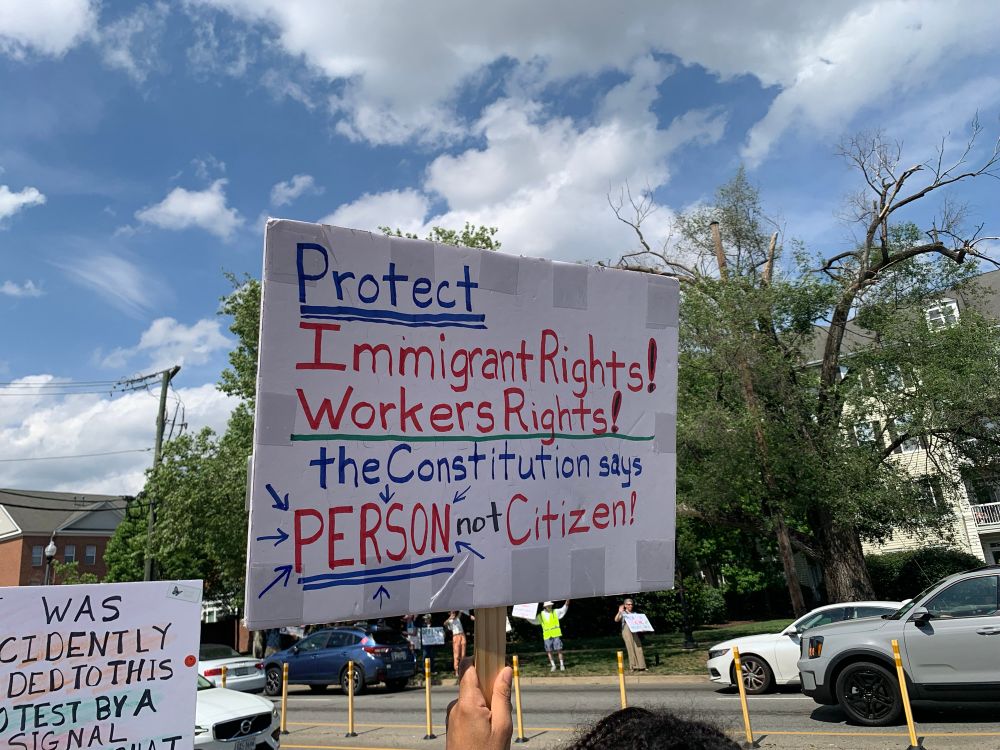 Protect
Immigrant Rights!
Workers Rights!
the Constitution says
PERSON not Citizen!
WAS
CIDENTLY
DED TO THIS
OTEST BY A
SIGNAL